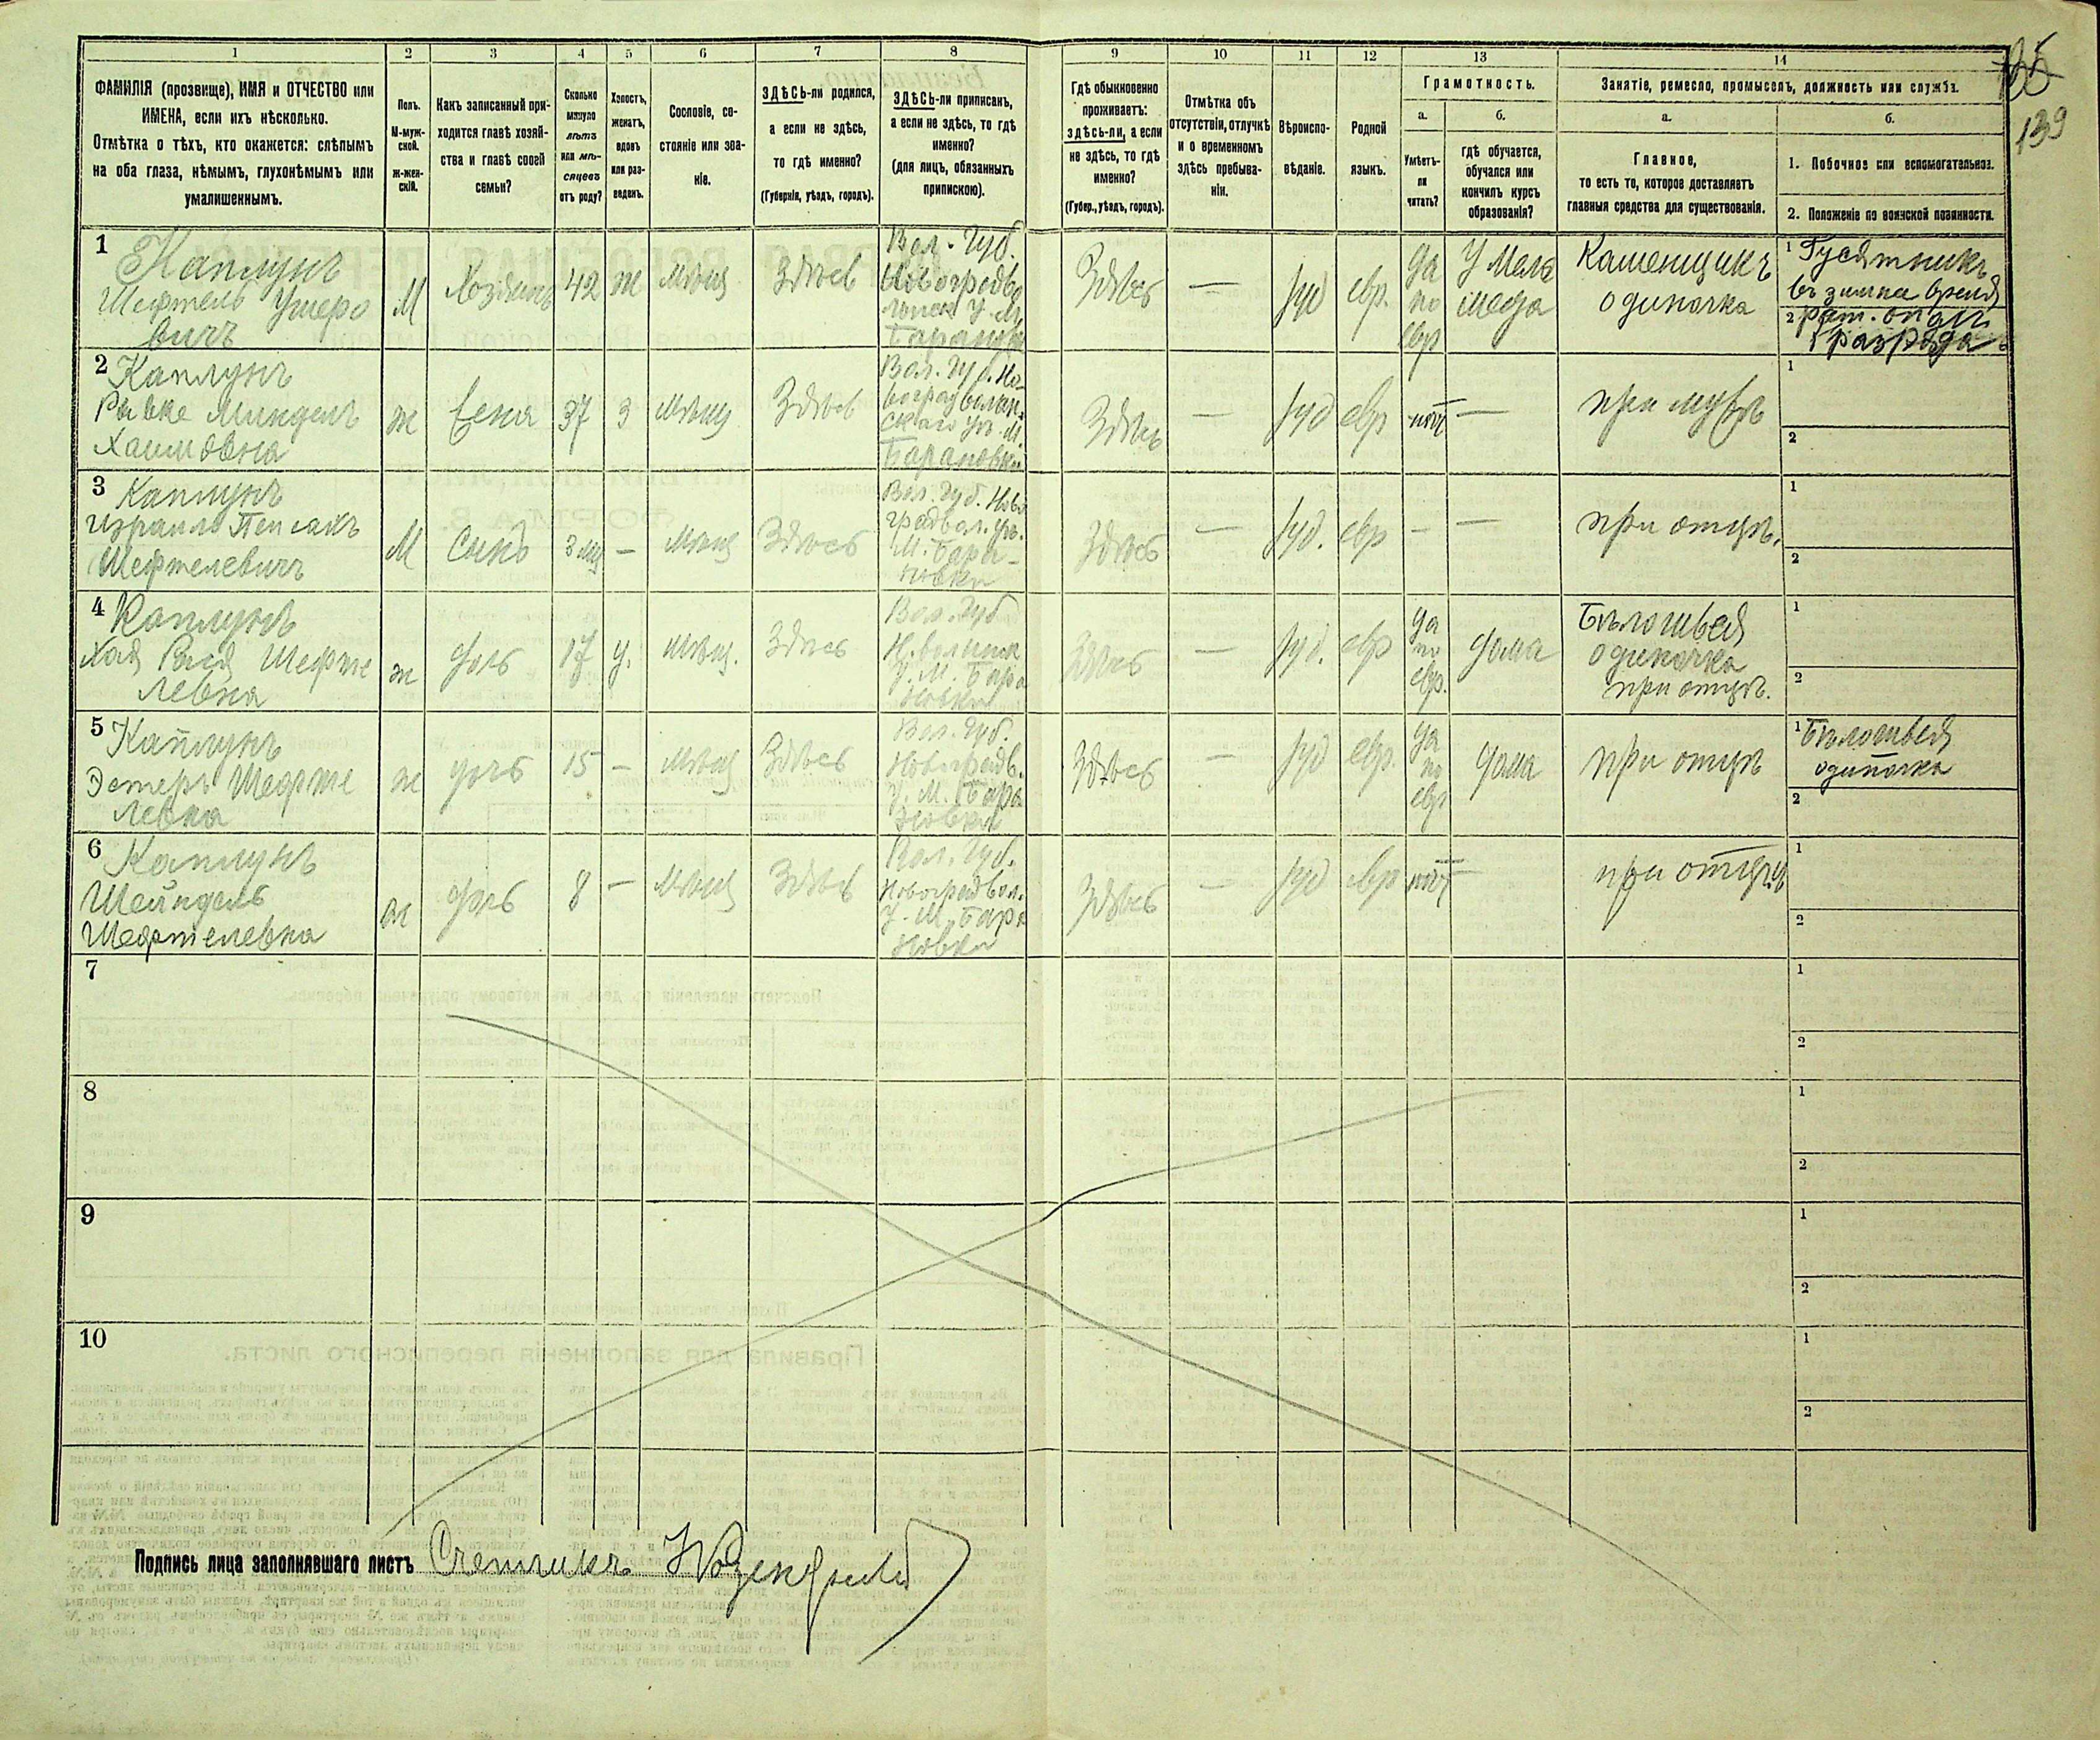 1 2 3 4 5 6 7 8 9 10 11 12 13 14
ФАМИЛІЯ (прозвище), ИМЯ и ОТЧЕСТВО или
ИМЕНА, если ихъ нѣсколько.
Отмѣтка о тѣхъ, кто окажется: слѣпымъ
на оба глаза, нѣмымъ, глухонѣмымъ или
умалишеннымъ.
Полъ.
М-муж-
ской.
ж-жен-
скій.
Какъ записанный при-
ходится главѣ хозяй-
ства и главѣ своей
семьи?
Сколько
минуло
лѣтъ
или мѣ-
сяцевъ
отъ роду?
Холостъ,
женатъ,
вдовъ
или раз-
веденъ.
Сословіе, со-
стояніе или зва-
ніе.
ЗДѢСЬ-ли родился,
а если не здѣсь,
то гдѣ именно?
(Губернія, уѣздъ, городъ).
ЗДѢСЬ-ли приписанъ,
а если не здѣсь, то гдѣ
именно?
(для лицъ, обязанныхъ
припискою).
Гдѣ обыкновенно
проживаетъ:
здѣсь-ли, а если
не здѣсь, то гдѣ
именно?
(Губер., уѣздъ, городъ).
Отмѣтка объ
отсутствіи, отлучкѣ
и о временномъ
здѣсь пребыва-
ніи.
Вѣроиспо-
вѣданіе.
Родной
языкъ.
Грамотность.
а.
Умѣетъ-
ли
читать?
б.
гдѣ обучается,
обучался или
кончилъ курсъ
образованія?
Занятіе, ремесло, промыселъ, должность или служба.
а.
Главное,
то есть то, которое доставляетъ
главныя средства для существованія.
б.
1. Побочное или вспомогательное.
2. Положеніе по воинской повинности.
139
1
Каплунъ
Шефтель Ушеро
вичъ
М
Хозяинъ
42
ж
мѣщ
Здѣсь
Вол. Губ.
Новоградво
лынск У. М.
Барановк
Здѣсь
—
Іуд
евр.
да
по
евр
У Мела
меда
Каменщикъ
одиночка
1 Гусятникъ
въ зимнее время
2 рат. опол
разряда
2
Каплунъ
Ривке Миндель
Хаимовна
ж
Жена
37
З
мѣщ
Здѣсь
Вол. Губ. Но-
воградволын-
скаго уѣ. М.
Барановки
Здѣсь
—
Іуд
евр
нѣт
—
при мужѣ
1
2
3
Каплунъ
Израиль Пейсакъ
Шефтелевичъ
М
Сынъ
3 мц
—
мѣщ
Здѣсь
Вол. Губ. Ново
градвол. уѣ.
М. Бара-
новки
Здѣсь
—
Іуд.
евр
—
—
при отцѣ.
1
2
4
Каплунъ
Хая Рися Шефте
левна
ж
дочь
17
у.
мѣщ.
Здѣсь
Вол. Губ
Н. волынск
У. М. Бара
новки
Здѣсь
—
Іуд.
евр
да
по
евр.
дома
Бѣлошвея
одиночка
при отцѣ.
1
2
5
Каплунъ
Эстеръ Шефте
левна
ж
дочь
15
—
мѣщ
Здѣсь
Вол. Губ.
Новоградв.
У. М. Бара
новки
Здѣсь
—
Іуд
евр.
да
по
евр
дома
при отцѣ
1 Бѣлошвея
одиночка
2
6
Каплунъ
Шейндель
Шефтелевна
ж
дочь
8
—
мѣщ
Здѣсь
Вол. Губ.
Новоградвол.
У. М. Бара
новки
Здѣсь
—
Іуд
евр
нѣт
—
при отцѣ
1
2
7
1
2
8
1
2
9
1
2
10
1
2
Подпись лица заполнявшаго листъ Счетчикъ